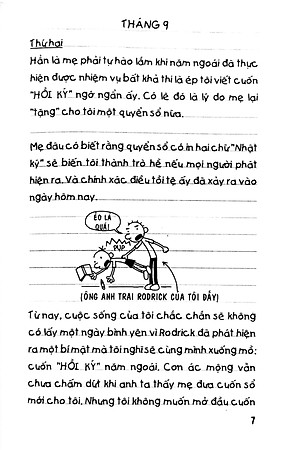 THÁNG 9
Thứ hai
Hẳn là mẹ phải tự hào lắm khi năm ngoái đã thực
hiện được nhiệm vụ bất khả thi là ép tôi viết cuốn
"HỒI KÝ" ngớ ngẩn ấy. Có lẽ đó là lý do mẹ lại
"tặng" cho tôi một quyển sổ nữa.
Mẹ đâu có biết rằng quyển sổ có in hai chữ "Nhật
ký" sẽ biến tôi thành trò hề nếu mọi người phát
hiện ra. Và chính xác điều tồi tệ ấy đã xảy ra vào
ngày hôm nay.
ẺO LẢ
QUÁ!
PỤP
(ÔNG ANH TRAI RODRICK CỦA TÔI ĐẤY)
Từ nay, cuộc sống của tôi chắc chắn sẽ không
có lấy một ngày bình yên vì Rodrick đã phát hiện
ra một bí mật mà tôi nghĩ sẽ cùng mình xuống mồ:
cuốn "HỒI KÝ" năm ngoái. Cơn ác mộng vẫn
chưa chấm dứt khi anh ta thấy mẹ đưa cuốn sổ
mới cho tôi. Nhưng tôi không muốn mở đầu cuốn
7